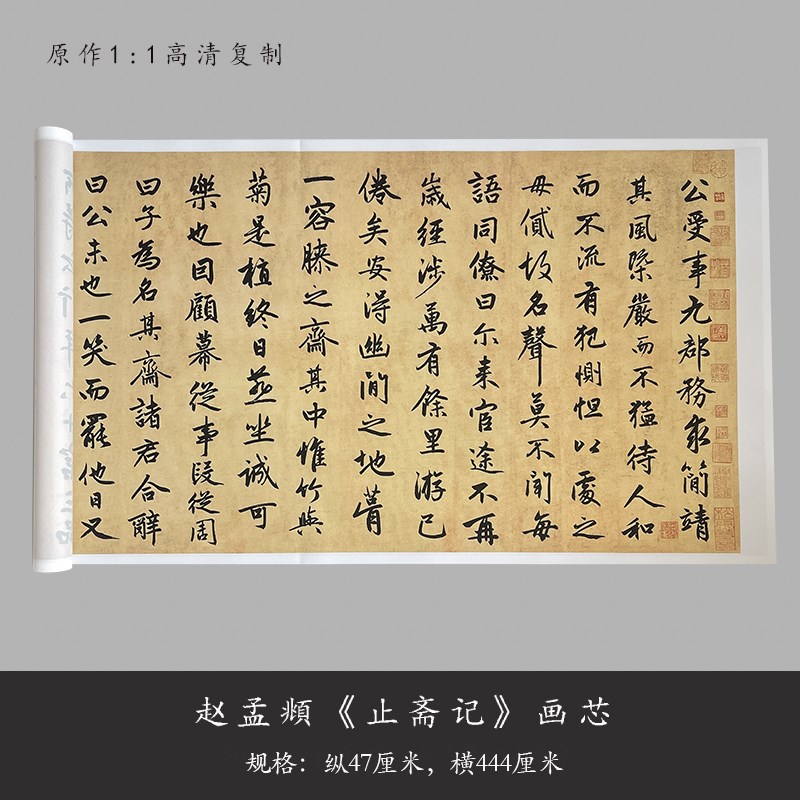 原作1:1高清复制
公受事九郡務求簡靖
其風槩嚴而不猛待人和
而不流有犯惻怛以處之
毋貳故名聲莫不聞每
語同僚曰尔来官途不再
歲經涉萬有餘里游已
倦矣安得幽閒之地葺
一容膝之齋其中惟竹與
菊是植終日燕坐誠可
樂也回顧幕從事段從周
曰子為名其齋諸君合辭
曰公未也一笑而罷他日又
赵孟頫《止斋记》画芯
规格：纵47厘米，横444厘米